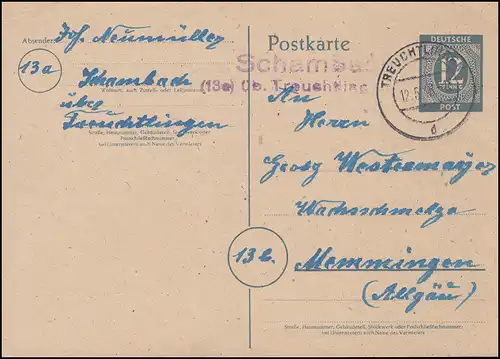 Absender: Joh. Neumüller
13a
Schambach
Wohnort, auch Zustell- oder Leitpostamt
über
Treuchtlingen
Straße, Hausnummer, Gebäudeteil, Stockwerk oder
Postschließfachnummer
bei Untermietern auch Name des Vermieters
Postkarte
Schambach
(13a) üb. Treuchtling
DEUTSCHE
12
PFENNIG
POST
TREUCHTLI
12.
d
An
Herrn
Georg Westermayer
Wachsschmelze
13b.
Memmingen
(Allgäu)
Straße, Hausnummer, Gebäudeteil, Stockwerk oder Postschließfachnummer
bei Untermietern auch Name des Vermieters